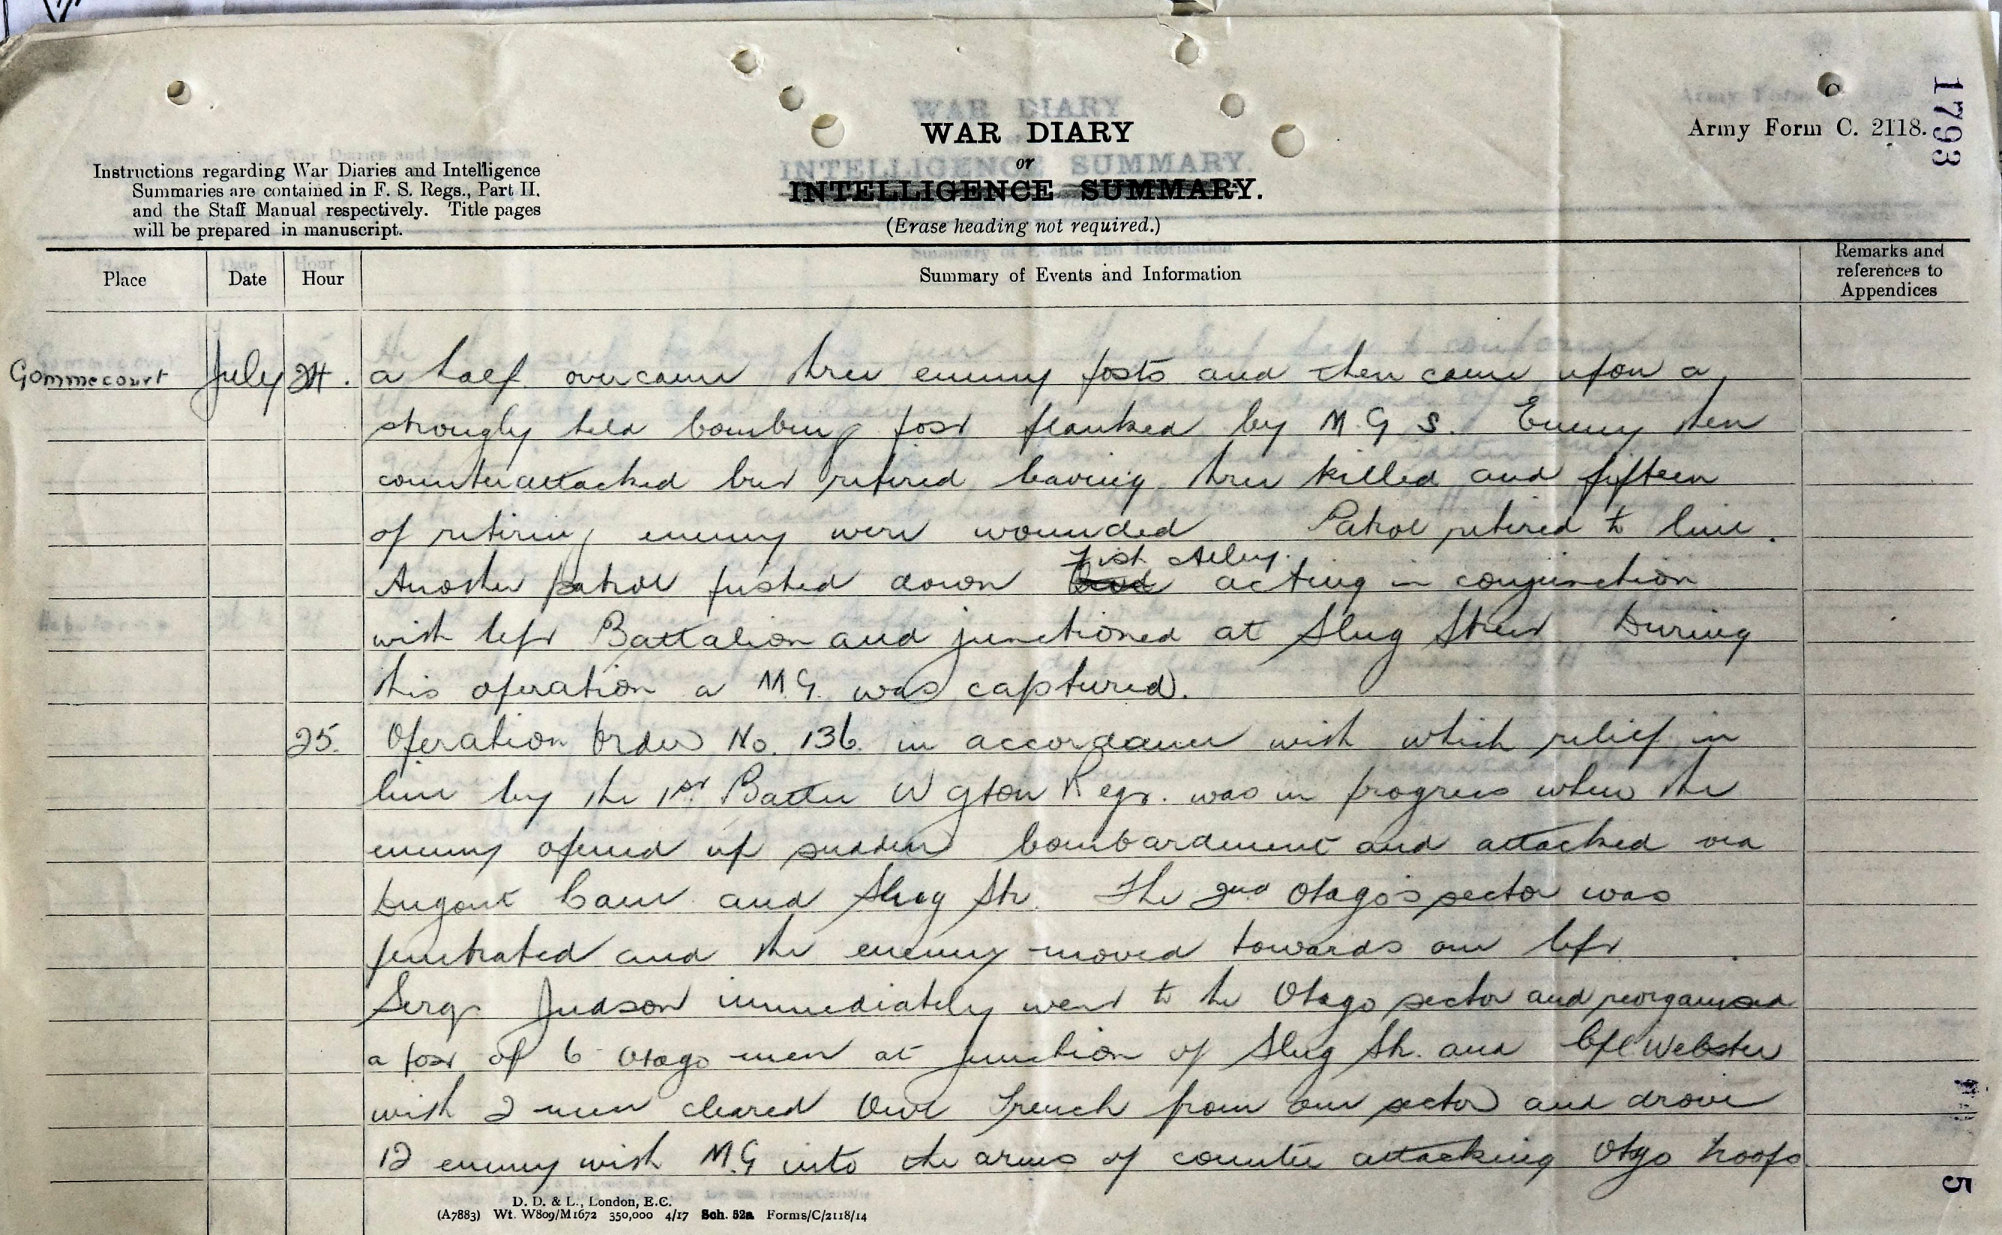 1793
Army Form C. 2118.
WAR DIARY
or
INTELLIGENCE SUMMARY.
(Erase heading not required.)
Instructions regarding War Diaries and Intelligence
Summaries are contained in F. S. Regs., Part II.
and the Staff Manual respectively. Title pages
will be prepared in manuscript.
Place Date Hour Summary of Events and Information Remarks and
references to
Appendices
Gommecourt July 24. a half overcame three enemy posts and then came upon a
strongly held bombing post flanked by M.G s. Enemy then
counterattacked but retired leaving three killed and fifteen
of retiring enemy were wounded Patrol retired to line.
Another patrol pushed down acting in conjunction
with left Battalion and junctioned at Slug Street During
this operation a M.G. was captured.
25. Operation Order No. 136 in accordance with which relief in
line by the 1st Battn Wgton Regt. was in progress when the
enemy opened up sudden bombardment and attacked via
Dugout Lane and Slug St. The 2nd Otago's sector was
penetrated and the enemy moved towards our left
Sergt Judson immediately went to the Otago sector and reorganised
a post of 6 Otago men at junction of Slug St. and Cpl Webster
with 2 men cleared Owl Trench from our sector and drove
12 enemy with M.G into the arms of counter attacking Otgo troops
D. D. & L., London, E.C.
(A7883) Wt. W809/M1672 350,000 4/17 Sch. 52a Forms/C/2118/14
5